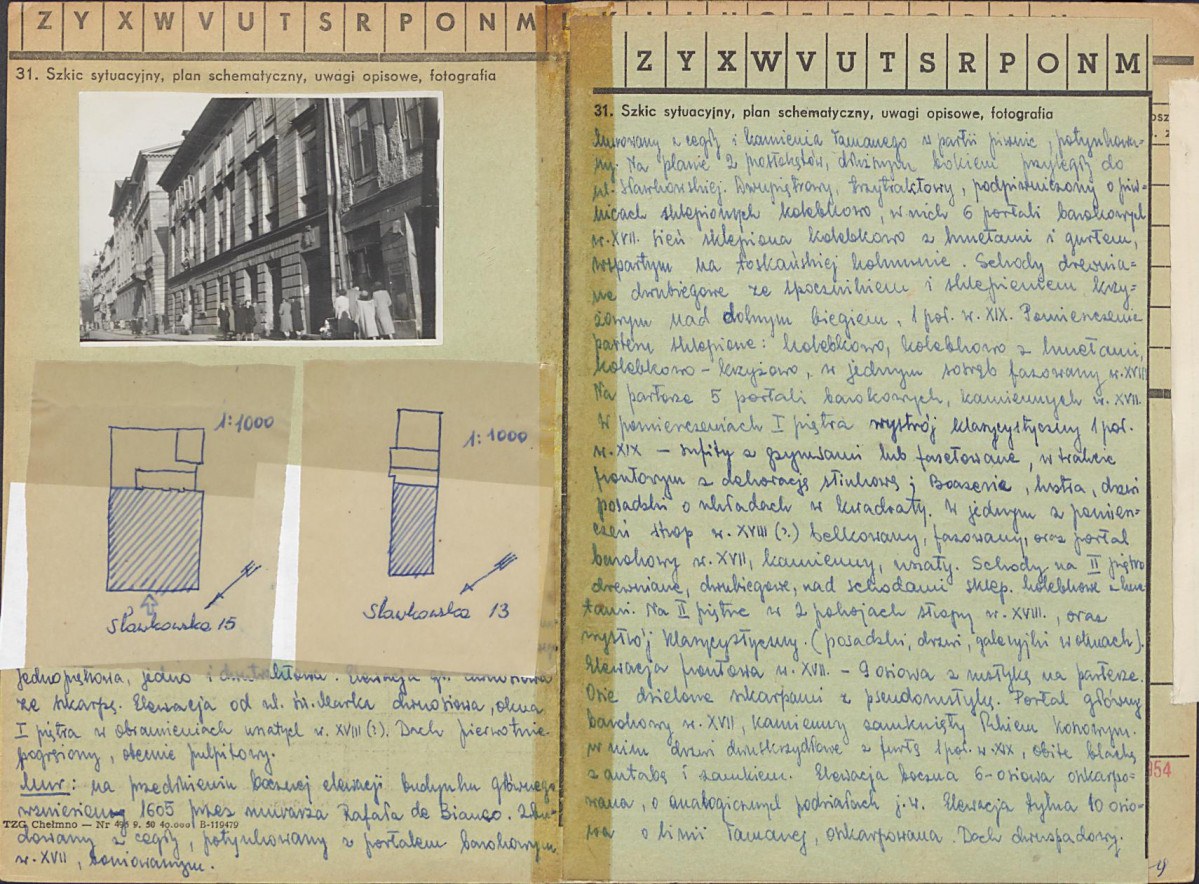 Z Y X W V U T S R P O N M
31. Szkic sytuacyjny, plan schematyczny, uwagi opisowe, fotografia
1:1000
Sławkowska 15
1:1000
Sławkowska 13
jednopiętrowa, jedno i dwutraktowa. Elewacja
ze skarpą. Elewacja od ul. św. Marka dwuosiowa, okna
I piętra w obramieniach uszatych w. XVIII (?). Dach pierwotnie
pogrążony, obecnie pulpitowy.
Mur: na przedłużeniu bocznej elewacji budynku głównego
wzniesiony 1605 przez murarza Rafała de Bianco. Zbu-
dowany z cegły, potynkowany z portalem barokowym
w. XVII, boniowanym.
TZG Chełmno — Nr 495 9. 50 40.000 B-119479
Z Y X W V U T S R P O N M
31. Szkic sytuacyjny, plan schematyczny, uwagi opisowe, fotografia
Murowany z cegły i kamienia łamanego w partii piwnic, potynkowa-
ny. Na planie 2 prostokątów, dłuższym bokiem przyległy do
ul. Sławkowskiej. Dwupiętrowy, trzytraktowy, podpiwniczony o piw-
nicach sklepionych kolebkowo, w nich 6 portali barokowych
w. XVII. Sień sklepiona kolebkowo z lunetami i gurtem,
wspartym na toskańskiej kolumnie. Schody drewnia-
ne dwubiegowe ze spocznikiem i sklepieniem krzy-
żowym nad dolnym biegiem, 1 poł. w. XIX. Pomieszczenia
parteru sklepione: kolebkowo, kolebkowo z lunetami,
kolebkowo-krzyżowo, w jednym sosręb fazowany w. XVII
Na parterze 5 portali barokowych, kamiennych w. XVII.
W pomieszczeniach I piętra wystrój klasycystyczny 1 poł.
w. XIX — sufity z gzymsami lub fasetowane, w trakcie
frontowym z dekoracją stiukową; Boazeria, lustra, drzwi
posadzki o układach w kwadraty. W jednym z pomiesz-
czeń strop w. XVIII (?) belkowany, fazowany, oraz portal
barokowy w. XVII, kamienny, uszaty. Schody na II piętro
drewniane, dwubiegowe, nad schodami sklep. kolebkowe z lune-
tami. Na II piętrze w 2 pokojach stropy w. XVIII., oraz
wystrój klasycystyczny. (posadzki, drzwi, galeryjki w oknach).
Elewacja frontowa w. XVII. – 9 osiowa z rustyką na parterze.
Osie dzielone skarpami z pseudorustyką. Portal główny
barokowy w. XVII, kamienny zamknięty łukiem koszowym.
w nim drzwi dwuskrzydłowe z furtą 1 poł. w. XIX, obite blachą
z antabą i zamkiem. Elewacja boczna 6-osiowa oskarpo-
wana, o analogicznych podziałach j.w. Elewacja tylna 10 osio-
wa o linii łamanej, oskarpowana. Dach dwuspadowy.
954